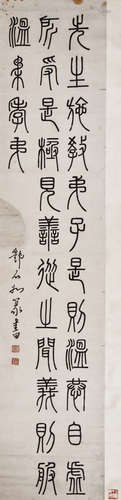 先生施教弟子是則溫恭自虛
所受是極見善從之聞義則服
溫柔孝弟
鄧石如篆書